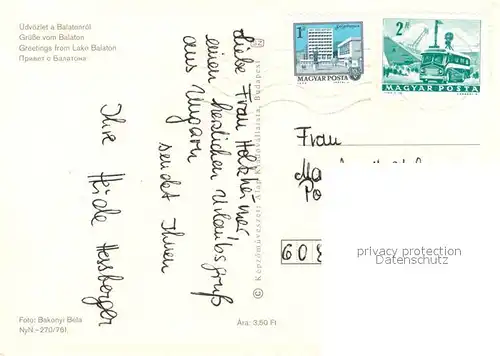 Üdvözlet a Balatonról
Grüße vom Balaton
Greetings from Lake Balaton
Привет с Балатона
Liebe Frau Holzheimer,
einen herzlichen Urlaubsgruß
aus Ungarn
sendet Ihnen
Ihre Heide Hessberger
Foto: Bakonyi Béla
NyN.-270/761
Ára: 3,50 Ft
© Képzőművészeti Alap Kiadóvállalata, Budapest
1 Ft
MAGYAR POSTA
2 Ft
MAGYAR POSTA
Frau
60
privacy protection
watermark